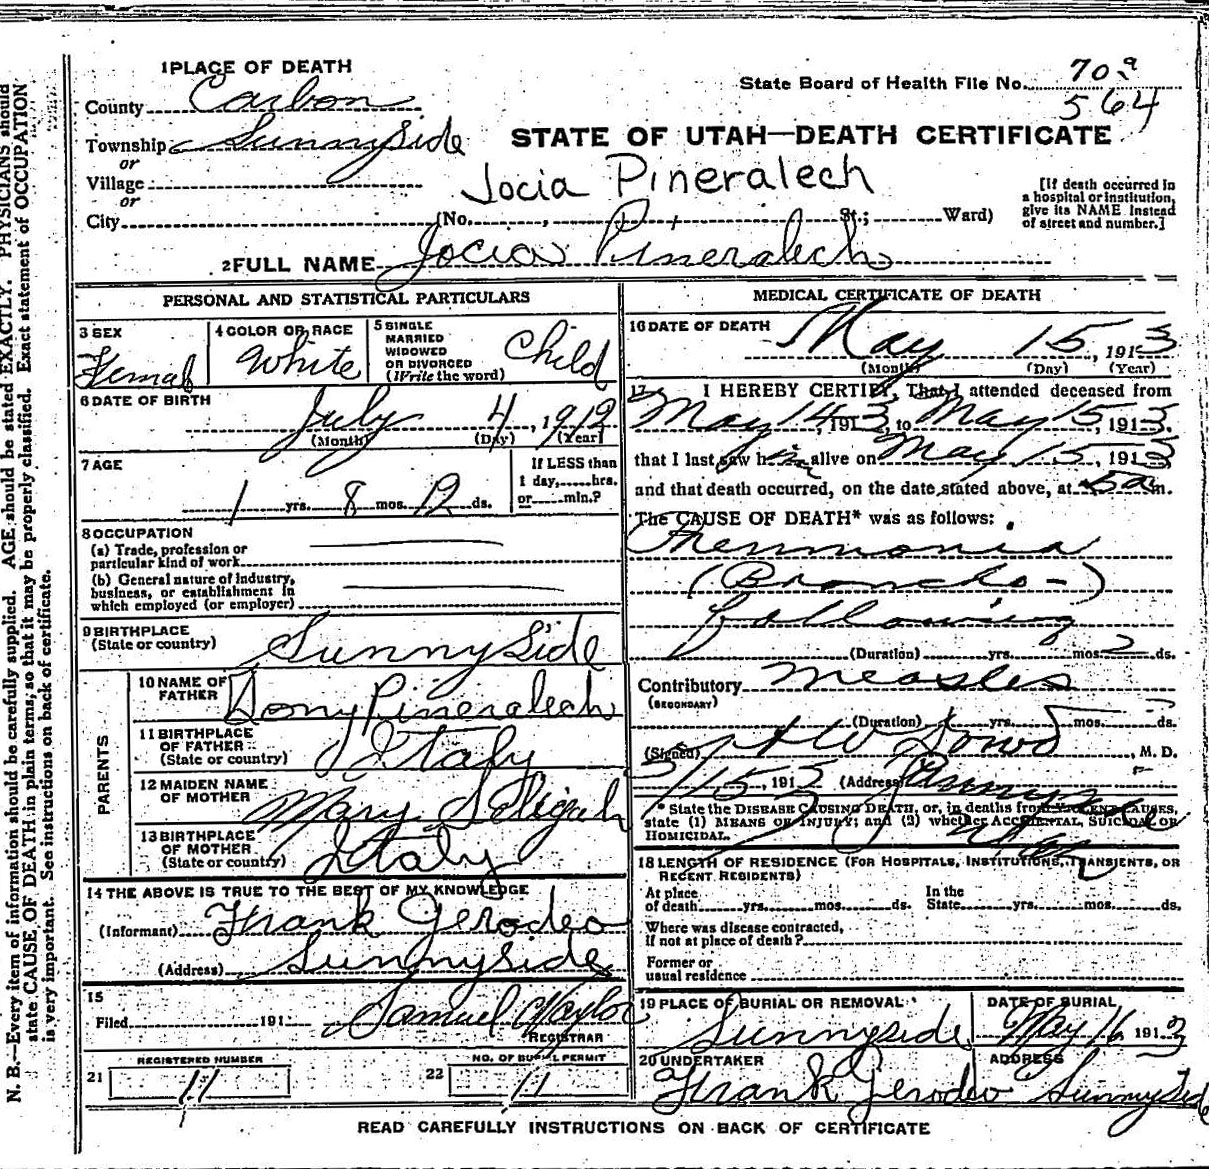 1 PLACE OF DEATH
State Board of Health File No. 70a
564
County Carbon
Township Sunnyside
or
Village
or
City
STATE OF UTAH—DEATH CERTIFICATE
Jocia Pineralech
(No. , St.; Ward)
[If death occurred in
a hospital or institution,
give its NAME instead
of street and number.]
2 FULL NAME Jocia Pineralech
PERSONAL AND STATISTICAL PARTICULARS
3 SEX
Female
4 COLOR OR RACE
White
5 SINGLE
MARRIED
WIDOWED
OR DIVORCED
(Write the word)
Child
6 DATE OF BIRTH
July 4, 1912
(Month) (Day) (Year)
7 AGE
1 yrs. 8 mos. 12 ds.
If LESS than
1 day,.....hrs.
or.....min.?
8 OCCUPATION
(a) Trade, profession or
particular kind of work
(b) General nature of industry,
business, or establishment in
which employed (or employer)
9 BIRTHPLACE
(State or country) Sunnyside
PARENTS
10 NAME OF
FATHER Dony Pineralech
11 BIRTHPLACE
OF FATHER
(State or country) Italy
12 MAIDEN NAME
OF MOTHER Mary
13 BIRTHPLACE
OF MOTHER
(State or country) Italy
14 THE ABOVE IS TRUE TO THE BEST OF MY KNOWLEDGE
(Informant) Frank Gerodeo
(Address) Sunnyside
15
Filed 191 Samuel Naylor
REGISTRAR
REGISTERED NUMBER
21 11
NO. OF BURIAL PERMIT
22 11
MEDICAL CERTIFICATE OF DEATH
16 DATE OF DEATH
May 15, 1913
(Month) (Day) (Year)
17 I HEREBY CERTIFY, That I attended deceased from
May 14, 1913, to May 15, 1913.
that I last saw him alive on May 15, 1913
and that death occurred, on the date stated above, at 5 a m.
The CAUSE OF DEATH* was as follows:
Pneumonia
(Broncho-)
following
(Duration) yrs. mos. 2 ds.
Contributory measles
(SECONDARY)
(Duration) yrs. mos. ds.
(Signed) H W Dowd, M. D.
5/15, 1913 (Address) Sunnyside
Utah
* State the DISEASE CAUSING DEATH, or, in deaths from VIOLENT CAUSES,
state (1) MEANS OF INJURY; and (2) whether ACCIDENTAL, SUICIDAL OR
HOMICIDAL.
18 LENGTH OF RESIDENCE (FOR HOSPITALS, INSTITUTIONS, TRANSIENTS, OR
RECENT RESIDENTS)
At place
of death yrs. mos. ds.
In the
State yrs. mos. ds.
Where was disease contracted,
if not at place of death?
Former or
usual residence
19 PLACE OF BURIAL OR REMOVAL
Sunnyside
DATE OF BURIAL
May 16 1913
20 UNDERTAKER
Frank Gerodeo
ADDRESS
Sunnyside
READ CAREFULLY INSTRUCTIONS ON BACK OF CERTIFICATE
N. B.—Every item of Information should be carefully supplied. AGE should be stated EXACTLY. PHYSICIANS should
state CAUSE OF DEATH in plain terms, so that it may be properly classified. Exact statement of OCCUPATION
is very important. See instructions on back of certificate.